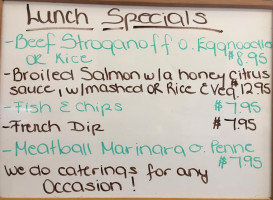 Lunch Specials
-Beef Stroganoff o. Eggnoodle
OR Rice $8.95
-Broiled Salmon w/a honey Citrus
sauce, w/mashed OR Rice & Veg. 12.95
-Fish & Chips $7.95
-French Dip $7.95
-Meatball Marinara o. Penne
$7.95
We do caterings for any
Occasion!